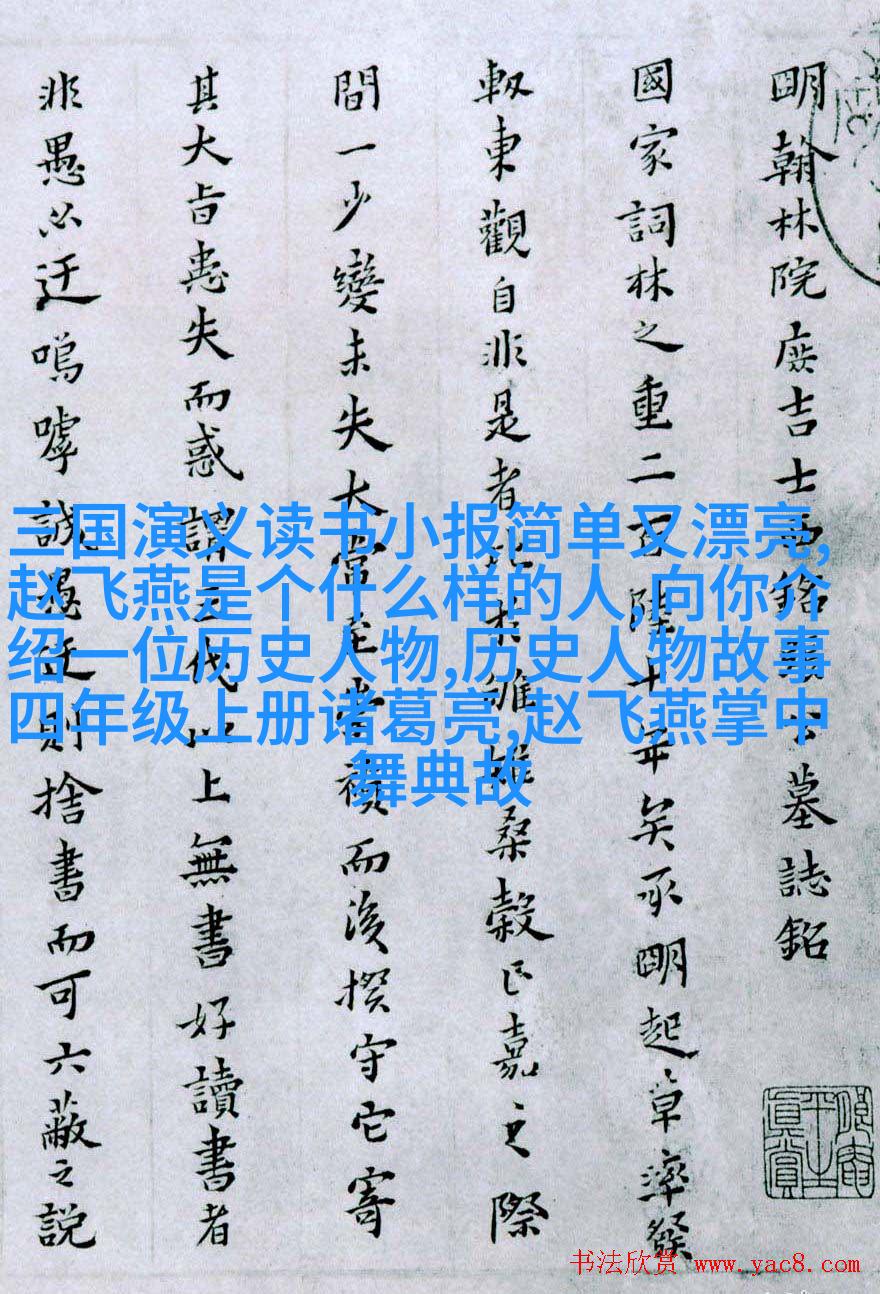 明翰林院庶吉士銘公墓誌銘
國家詞林之重二百陸十年矣承明起草率
軔東觀自非是者桑穀正嘉之際
間一少變未失大常至而後揆守它寄
其大旨悉失而惑謂三代以上無書好讀書者
非愚必迂嗚嘑誠愚迂則捨書而可六蔽之説
三国演义读书小报简单又漂亮,
赵飞燕是个什么样的人,向你介
绍一位历史人物,历史人物故事
四年级上册诸葛亮,赵飞燕掌中
舞典故
书法欣赏 www.yac8.com